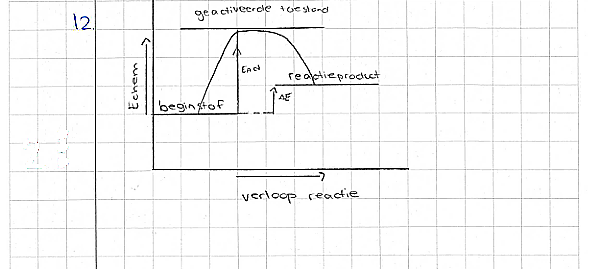 12
geactiveerde toestand
Eact
reactieproduct
Echem
ΔE
beginstof
verloop reactie